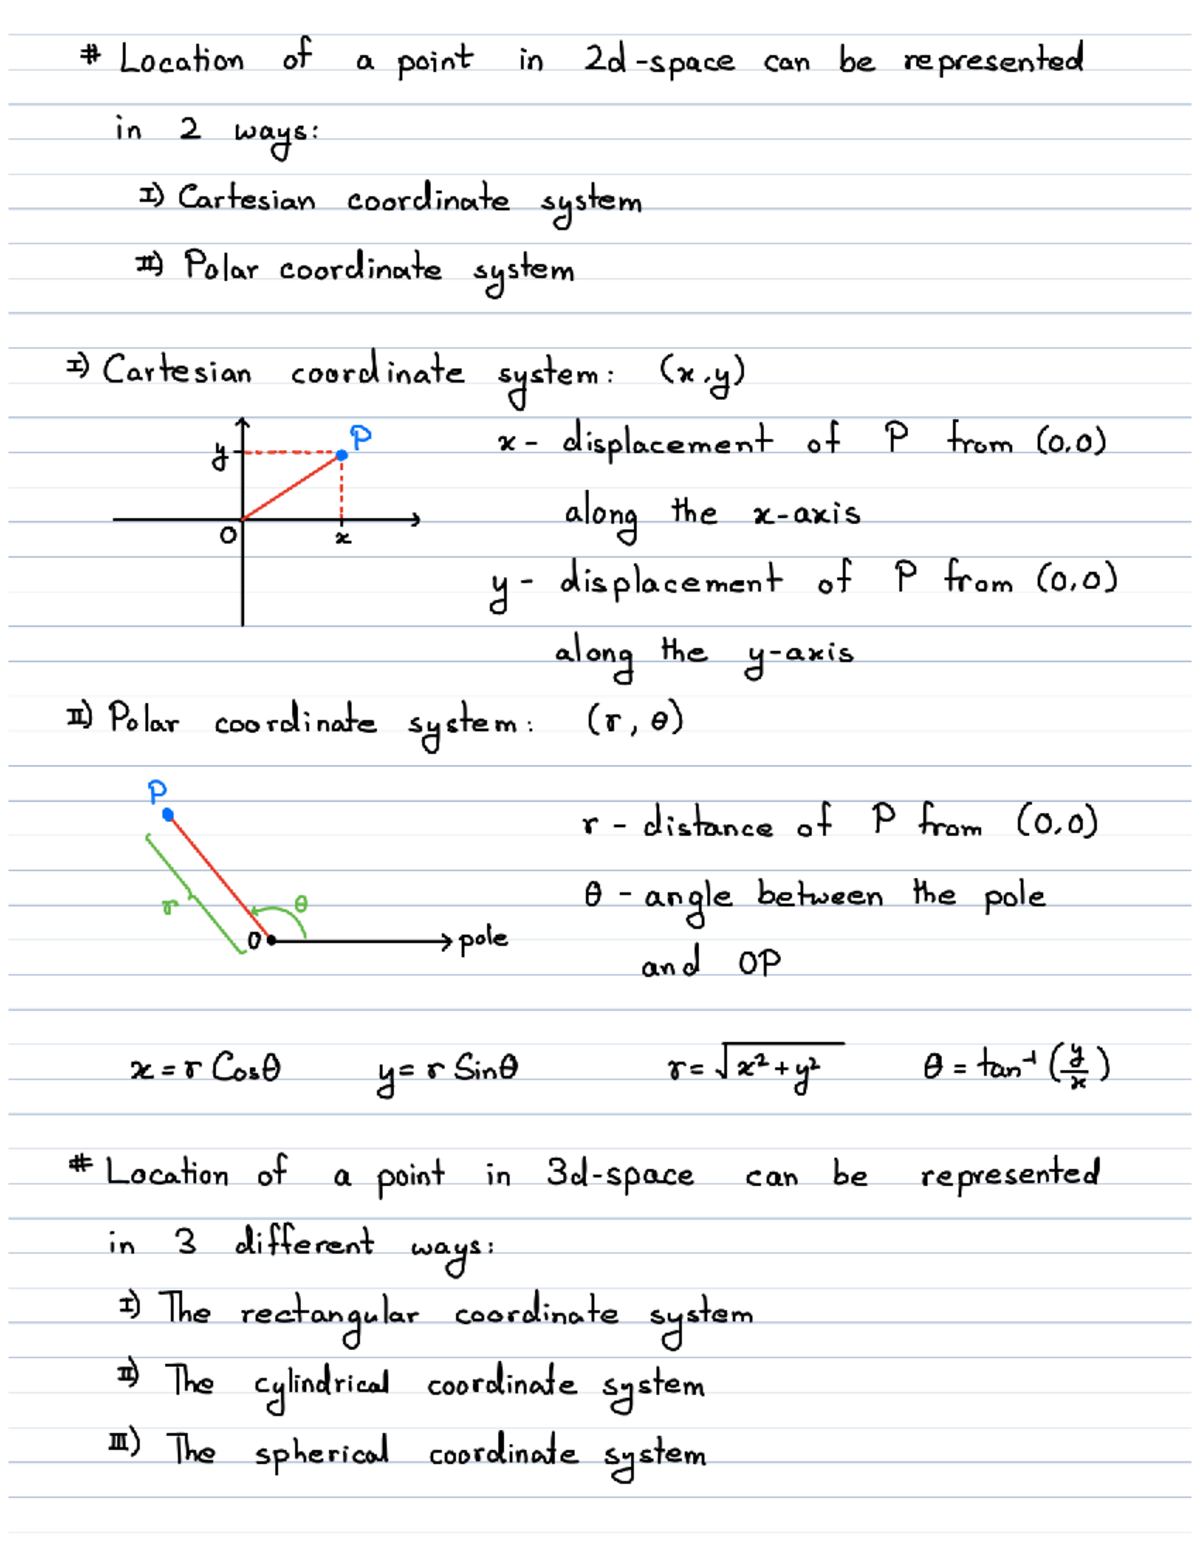 # Location of a point in 2d-space can be represented
in 2 ways:
I) Cartesian coordinate system
II) Polar coordinate system
I) Cartesian coordinate system: (x,y)
P
y
O
x
x - displacement of P from (0,0)
along the x-axis
y - displacement of P from (0,0)
along the y-axis
II) Polar coordinate system: (r, θ)
P
r
θ
O
pole
r - distance of P from (0,0)
θ - angle between the pole
and OP
x = r Cosθ y = r Sinθ r = √x²+y² θ = tan⁻¹ (y/x)
# Location of a point in 3d-space can be represented
in 3 different ways:
I) The rectangular coordinate system
II) The cylindrical coordinate system
III) The spherical coordinate system